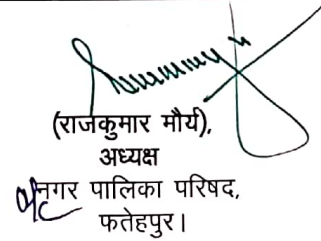 (राजकुमार मौर्य),
अध्यक्ष
नगर पालिका परिषद,
फतेहपुर।